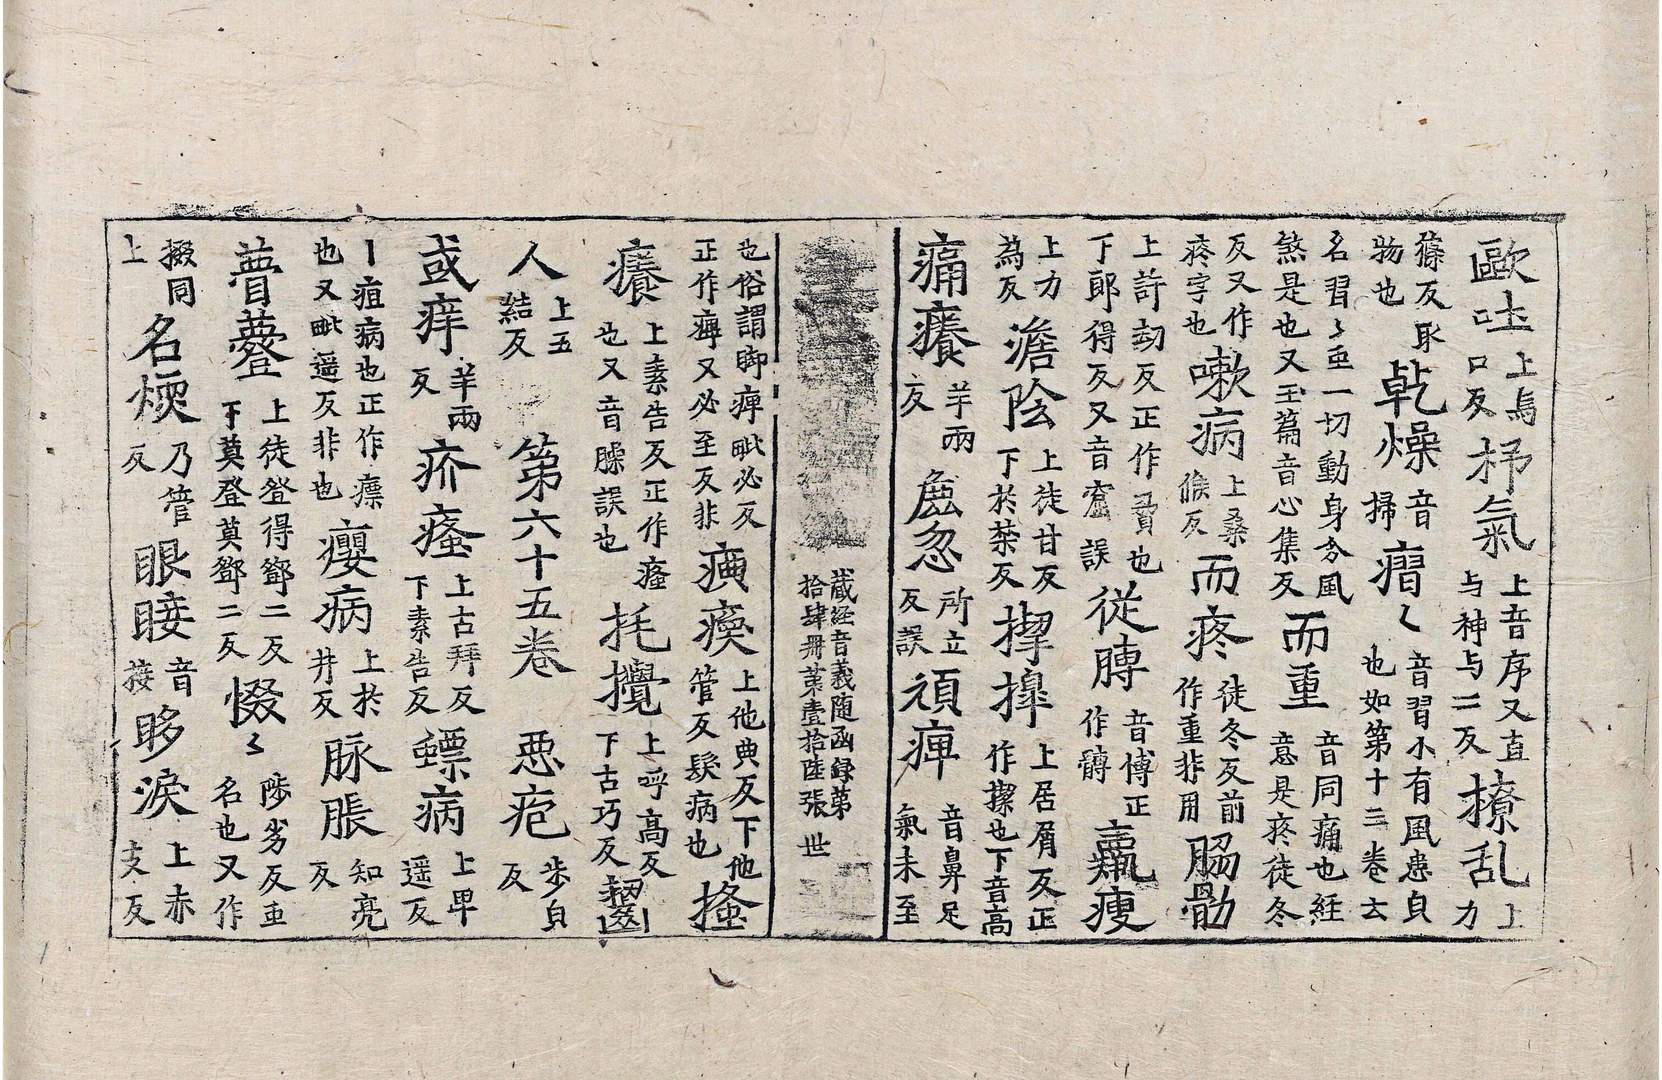 歐吐上烏口反杼氣上音序又直与神与二反撩乱上力
篠反取物也乾燥音掃〻音習小有風患皃也如第十三卷去
名習〻亟一切動身分風煞是也又玉篇音心集反而重音同痛也経意是疼徒冬
反又作疼字也嗽病上桑候反而疼徒冬反前作重非用脇
上許刧反正作脅也下郎得反又音窟誤從膊音博正作髆羸瘦
上力為反澹陰上徒甘反下於禁反上居屑反正作也下音高
痛癢羊兩反麁忽所立反誤頑痺音鼻足氣未至
蔵経音義随函録第拾肆冊第壹拾陸張 世
也俗謂脚痺毗必反正作痹又必至反非瘓上他典反下他管反髮病也搔
癢上素告反正作瘙也又音臊誤也托攪上呼高反下古巧反齧
人上五結反 第六十五卷 惡疱步皃反
或痒羊兩反疥瘙上古拜反下素告反螵病上毘遥反
丨疽病也正作瘭也又毗遥反非也癭病上於井反脉脹知亮反
瞢上徒登得鄧二反下莫登莫鄧二反惙〻陟劣反亟名也又作
掇同上名煗乃管反眼睫音接眵淚上赤支反